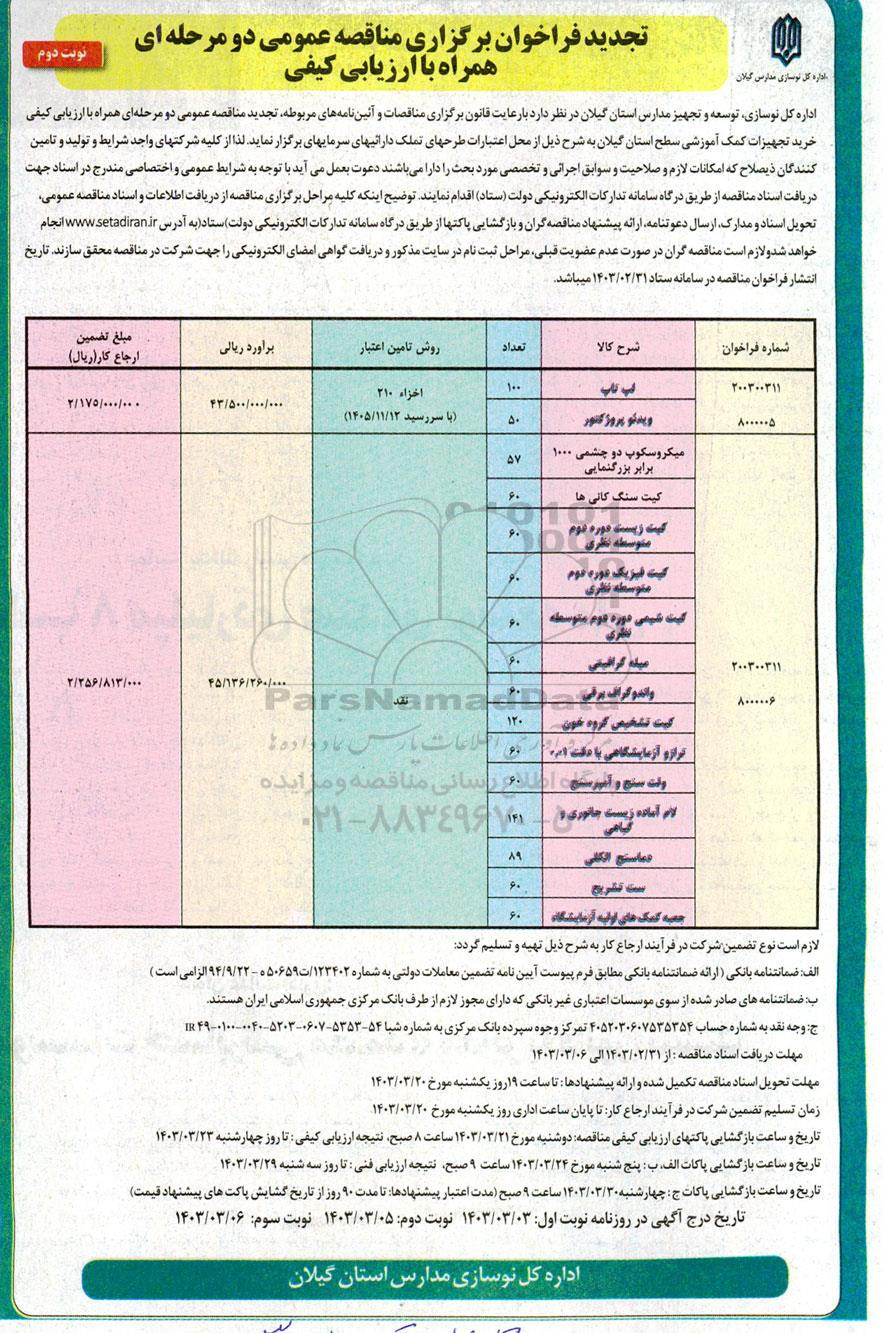 تجدید فراخوان برگزاری مناقصه عمومی دو مرحله ای
همراه با ارزیابی کیفی
نوبت دوم
اداره کل نوسازی مدارس گیلان
اداره کل نوسازی، توسعه و تجهیز مدارس استان گیلان در نظر دارد با رعایت قانون برگزاری مناقصات و آئین‌نامه‌های مربوطه، تجدید مناقصه عمومی دو مرحله‌ای همراه با ارزیابی کیفی
خرید تجهیزات کمک آموزشی سطح استان گیلان به شرح ذیل از محل اعتبارات طرحهای تملک دارائیهای سرمایه‍ای برگزار نماید. لذا از کلیه شرکتهای واجد شرایط و تولید و تامین
کنندگان ذیصلاح که امکانات لازم و صلاحیت و سوابق اجرائی و تخصصی مورد بحث را دارا می‌باشند دعوت بعمل می آید با توجه به شرایط عمومی و اختصاصی مندرج در اسناد جهت
دریافت اسناد مناقصه از طریق درگاه سامانه تدارکات الکترونیکی دولت (ستاد) اقدام نمایند. توضیح اینکه کلیه مراحل برگزاری مناقصه از دریافت اطلاعات و اسناد مناقصه عمومی،
تحویل اسناد و مدارک، ارسال دعوتنامه، ارائه پیشنهاد مناقصه‌گران و بازگشایی پاکتها از طریق درگاه سامانه تدارکات الکترونیکی دولت)ستاد(به آدرس www.setadiran.ir انجام
خواهد شد و لازم است مناقصه گران در صورت عدم عضویت قبلی، مراحل ثبت نام در سایت مذکور و دریافت گواهی امضای الکترونیکی را جهت شرکت در مناقصه محقق سازند. تاریخ
انتشار فراخوان مناقصه در سامانه ستاد ۱۴۰۳/۰۲/۳۱ میباشد.
شماره فراخوان شرح کالا تعداد روش تامین اعتبار برآورد ریالی مبلغ تضمین ارجاع کار(ریال)
۲۰۰۳۰۰۳۱۱ ۸۰۰۰۰۰۵
لپ تاپ ۱۰۰
ویدئو پروژکتور ۵۰
اخزاء ۲۱۰
(با سررسید ۱۴۰۵/۱۱/۱۲)
۴۳/۵۰۰/۰۰۰/۰۰۰
۲/۱۷۵/۰۰۰/۰۰۰
۲۰۰۳۰۰۳۱۱ ۸۰۰۰۰۰۶
میکروسکوپ دو چشمی ۱۰۰۰ برابر بزرگنمایی ۵۷
کیت سنگ کانی ها ۶۰
کیت زیست دوره دوم متوسطه نظری ۶۰
کیت فیزیک دوره دوم متوسطه نظری ۶۰
کیت شیمی دوره دوم متوسطه نظری ۶۰
میله گرافیتی ۶۰
واندوگراف برقی ۶۰
کیت تشخیص گروه خون ۱۲۰
ترازو آزمایشگاهی با دقت ۶۰
ولت سنج و آمپرسنج ۶۰
لام آماده زیست جانوری و گیاهی ۱۴۱
دماسنج الکلی ۸۹
ست تشریح ۶۰
جعبه کمک های اولیه آزمایشگاه ۶۰
نقد
۴۵/۱۳۶/۲۶۰/۰۰۰
۲/۲۵۶/۸۱۳/۰۰۰
ParsNamadData
مرکز فرآوری اطلاعات پارس نماد داده‌ها
پایگاه اطلاع رسانی مناقصه و مزایده
۰۲۱-۸۸۳۴۹۶۷۰-۵
لازم است نوع تضمین شرکت در فرآیند ارجاع کار به شرح ذیل تهیه و تسلیم گردد:
الف: ضمانتنامه بانکی ( ارائه ضمانتنامه بانکی مطابق فرم پیوست آیین نامه تضمین معاملات دولتی به شماره ۱۲۳۴۰۲/ت۵۰۶۵۹ ه – ۹۴/۹/۲۲ الزامی است )
ب: ضمانتنامه های صادر شده از سوی موسسات اعتباری غیر بانکی که دارای مجوز لازم از طرف بانک مرکزی جمهوری اسلامی ایران هستند.
ج: وجه نقد به شماره حساب ۴۰۵۲۰۳۰۶۰۷۵۳۵۳۵۴ تمرکز وجوه سپرده بانک مرکزی به شماره شبا ۵۴-۵۳۵۳-۰۶۰۷-۵۲۰۳-۰۰۴۰-۰۱۰۰-۴۹ IR
مهلت دریافت اسناد مناقصه : از ۱۴۰۳/۰۲/۳۱ الی ۱۴۰۳/۰۳/۰۶
مهلت تحویل اسناد مناقصه تکمیل شده و ارائه پیشنهادها: تا ساعت ۱۹ روز یکشنبه مورخ ۱۴۰۳/۰۳/۲۰
زمان تسلیم تضمین شرکت در فرآیند ارجاع کار: تا پایان ساعت اداری روز یکشنبه مورخ ۱۴۰۳/۰۳/۲۰
تاریخ و ساعت بازگشایی پاکتهای ارزیابی کیفی مناقصه: دوشنبه مورخ ۱۴۰۳/۰۳/۲۱ ساعت ۸ صبح، نتیجه ارزیابی کیفی : تا روز چهارشنبه ۱۴۰۳/۰۳/۲۳
تاریخ و ساعت بازگشایی پاکات الف، ب : پنج شنبه مورخ ۱۴۰۳/۰۳/۲۴ ساعت ۹ صبح، نتیجه ارزیابی فنی : تا روز سه شنبه ۱۴۰۳/۰۳/۲۹
تاریخ و ساعت بازگشایی پاکات ج : چهارشنبه ۱۴۰۳/۰۳/۳۰ ساعت ۹ صبح (مدت اعتبار پیشنهادها: تا مدت ۹۰ روز از تاریخ گشایش پاکت های پیشنهاد قیمت)
تاریخ درج آگهی در روزنامه نوبت اول: ۱۴۰۳/۰۳/۰۳ نوبت دوم: ۱۴۰۳/۰۳/۰۵ نوبت سوم: ۱۴۰۳/۰۳/۰۶
اداره کل نوسازی مدارس استان گیلان